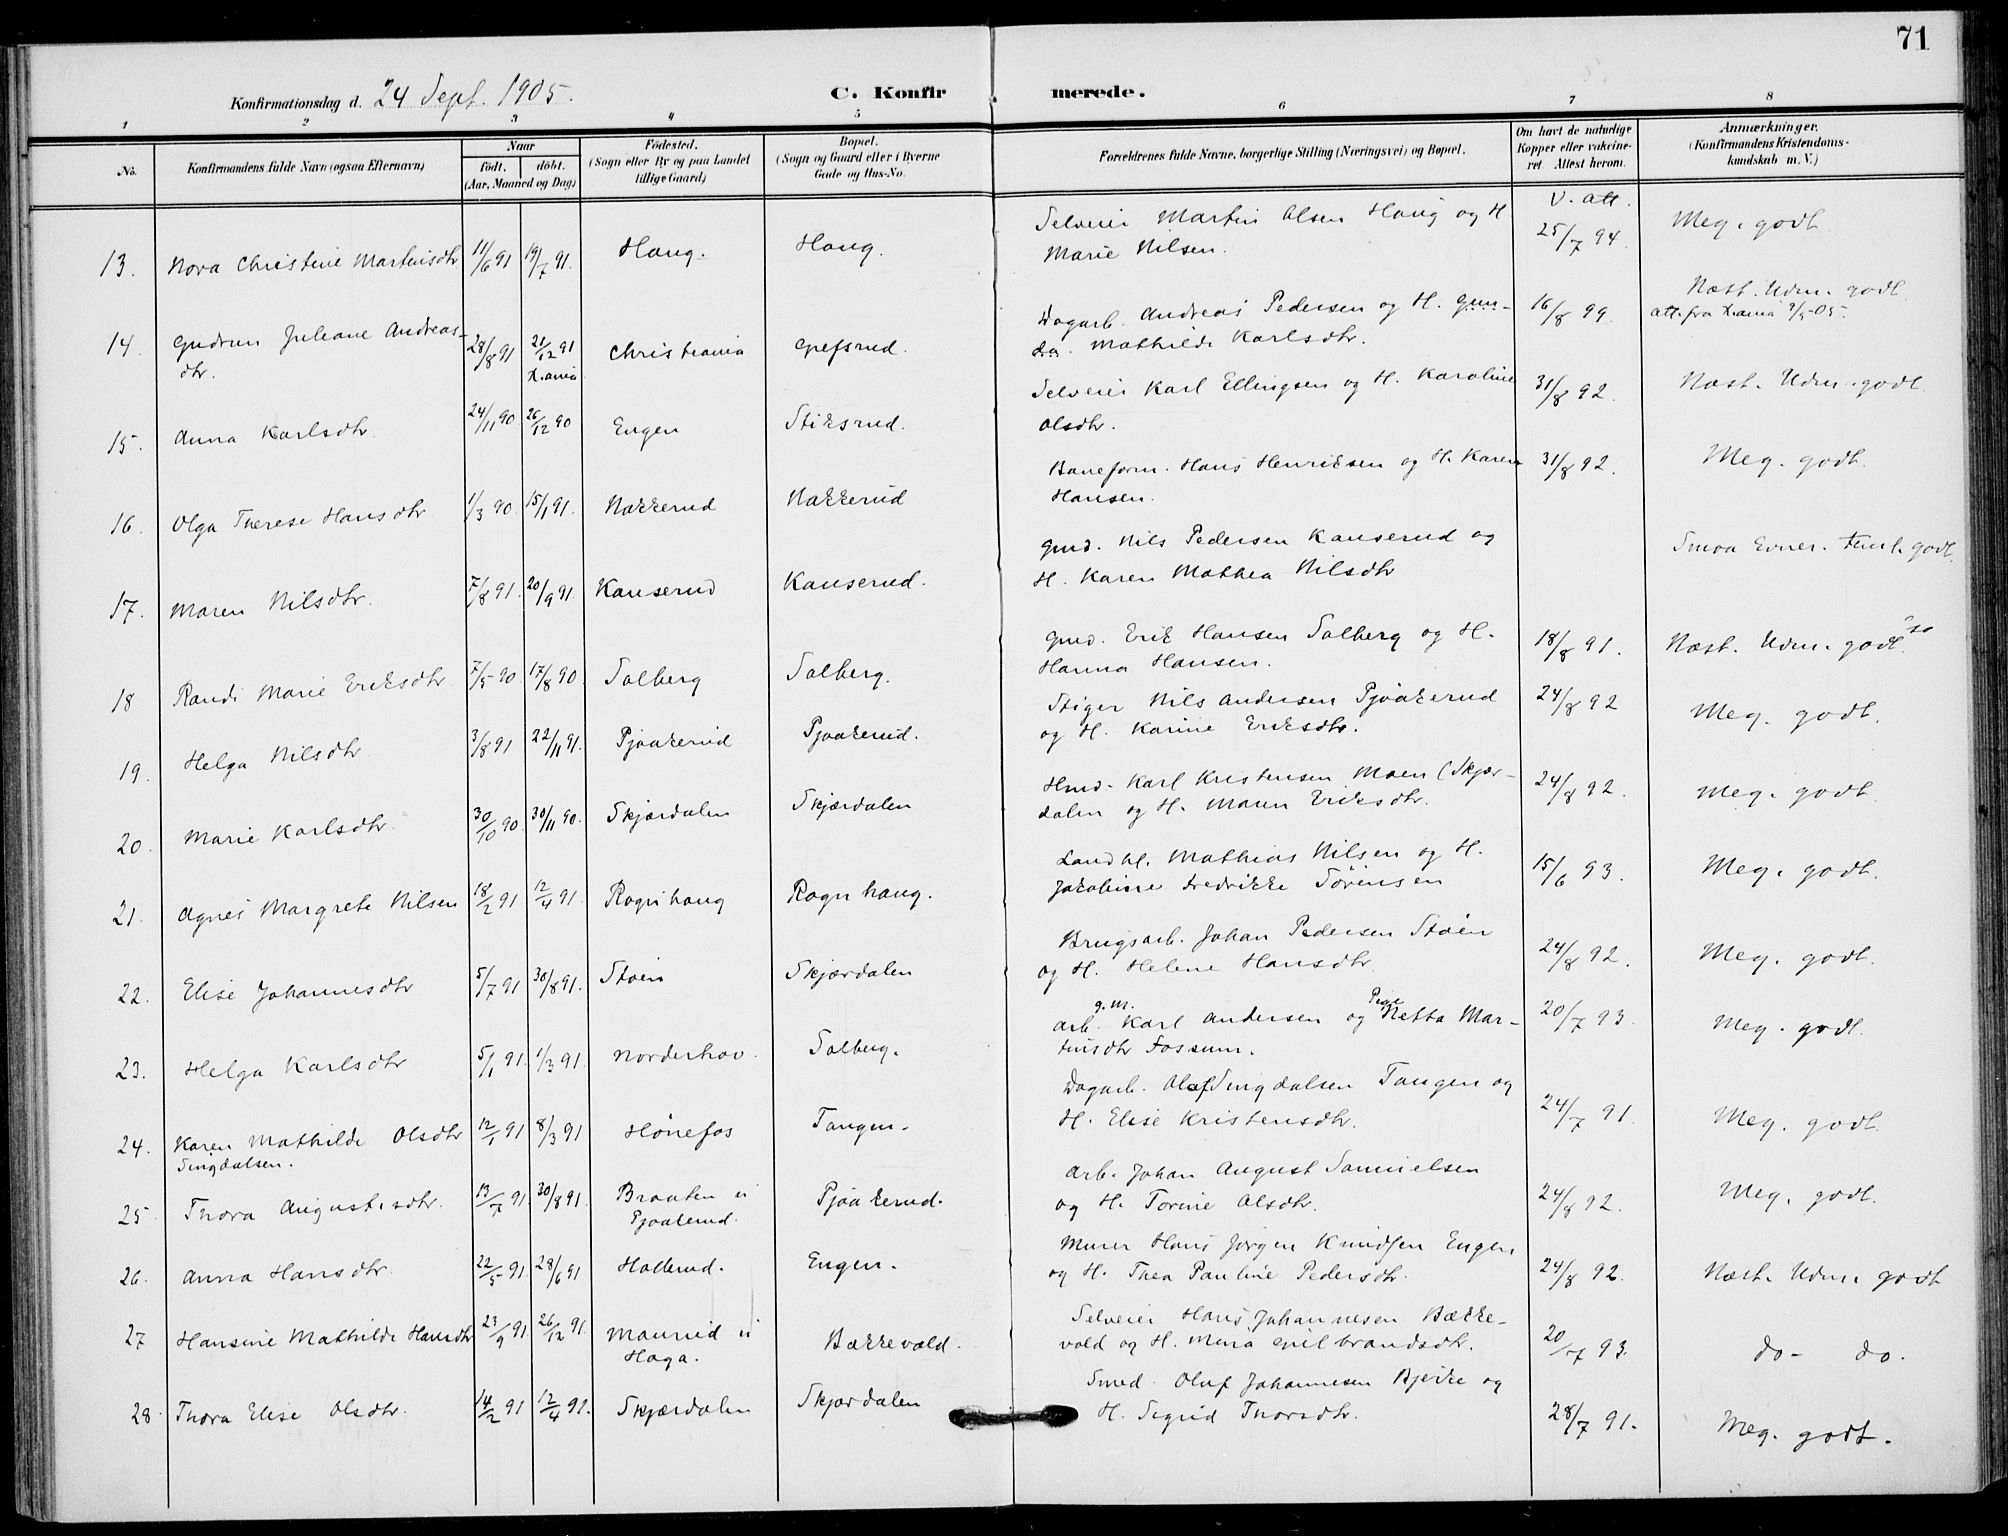 71
Konfirmationsdag d. 24 Sept. 1905.
C. Konfirmerede.
1 2 3 4 5 6 7 8
No.
Konfirmandens fulde Navn (ogsaa Efternavn)
Naar
födt. döbt.
(Aar, Maaned og Dag)
Födested.
(Sogn eller By og paa Landet
tillige Gaard)
Bopæl.
(Sogn og Gaard eller i Byerne
Gade og Hus-No.
Forældrenes fulde Navne, borgerlige Stilling (Næringsvei) og Bopæl.
Om havt de naturlige
Kopper eller vakcine-
ret. Attest herom.
Anmærkninger.
(Konfirmandens Kristendoms-
kundskab m. V.)
13. Nora Christine Martinsdtr 11/6 91 19/7 91. Haug. Haug.
Selveier Martin Olsen Haug og H
Marie Nilsen.
V. att.
25/7 94.
Meg. godt
14. Gudrun Juliane Andreas-
dtr.
28/8 91 21/12 91
X.ania
Christiania Gefsrud.
Dagarb. Andreas Pedersen og H. Gun-
da. Mathilde Karlsdtr.
16/8 99
Næst. Udm. godt
att. fra Xania 9/5-05.
15. Anna Karlsdtr. 24/11 90 26/12 90 Engen Stiksrud.
Selveier Karl Ellingsen og H. Karoline
Olsdtr.
31/8 92.
Næst. Udm. godt
16. Olga Therese Hansdtr 1/3 90. 15/1 91. Nakkerud Nakkerud
Baneform. Hans Henriksen og H. Karen
Hansen.
31/8 92.
Meg. godt.
17. Maren Nilsdtr. 7/8 91. 20/9 91. Kanserud Kanserud.
Gmd. Nils Pedersen Kanserud og
H. Karen Mathea Nilsdtr
Smaa Evner. Teml. godt.
18 Randi Marie Eriksdtr 7/5 90. 17/8 90 Solberg Solberg.
Gmd. Erik Hansen Solberg og H.
Hanna Hansen.
18/8 91.
Næst. Udm. godt
19. Helga Nilsdtr 3/8 91 22/11 91. Pjaakerud Pjaakerud.
Stiger Nils Andersen Pjaakerud
og H. Karine Eriksdtr.
24/8 92
Meg. godt.
20. Marie Karlsdtr. 30/10 90 30/11 90. Skjærdalen Skjærdalen
Hmd. Karl Kristensen Moen (Skjær-
dalen og H. Maren Eriksdtr.
24/8 92.
Meg. godt
21. Agnes Margrete Nilsen 18/2 91 12/4 91. Rognhaug Rognhaug.
Landhl. Mathias Nilsen og H.
Jakobine Fredrikke Sørensen
15/6 93.
Meg. godt.
22. Elise Johannesdtr 5/7 91 30/8 91. Støen Skjærdalen
Brugsarb. Johan Pedersen Støen
og H. Helene Hansdtr.
24/8 92.
Meg. godt.
23. Helga Karlsdtr 5/1 91. 1/3 91. Norderhov. Solberg.
g.m. Pige
arb. Karl Andersen og Netta Mar-
tinsdtr Fossum.
20/7 93.
Meg. godt.
24. Karen Mathilde Olsdtr
Singdalsen.
12/1 91 8/3 91 Hønefos Tangen.
Dagarb. Olaf Singdalsen Tangen og
H. Elise Kristensdtr.
24/7 91.
Meg. godt.
25. Thora Augustsdtr. 13/7 91 30/8 91. Braaten u
Pjaakerud.
Pjaakerud.
Arb. Johan August Samuelsen
og H. Torine Olsdtr.
24/8 92.
Meg. godt.
26. Anna Hansdtr. 22/5 91. 28/6 91 Hollerud. Engen.
Murer Hans Jørgen Knudsen Engen
og H. Thea Pauline Pedersdtr.
24/8 92.
Næst. Udm. godt
27 Hansine Mathilde Hansdtr 23/9 91. 26/12 91. Maurud u
Haga.
Bækkevold.
Selveier Hans Johannesen Bække-
vold og H. Mina Gulbrandsdtr.
20/7 93.
do- do.
28. Thora Elise Olsdtr. 14/2 91 12/4 92. Skjærdalen Skjærdalen
Smed. Oluf Johannesen Bjerke og
H. Sigrid Thorsdtr.
28/7 91.
Meg. godt.